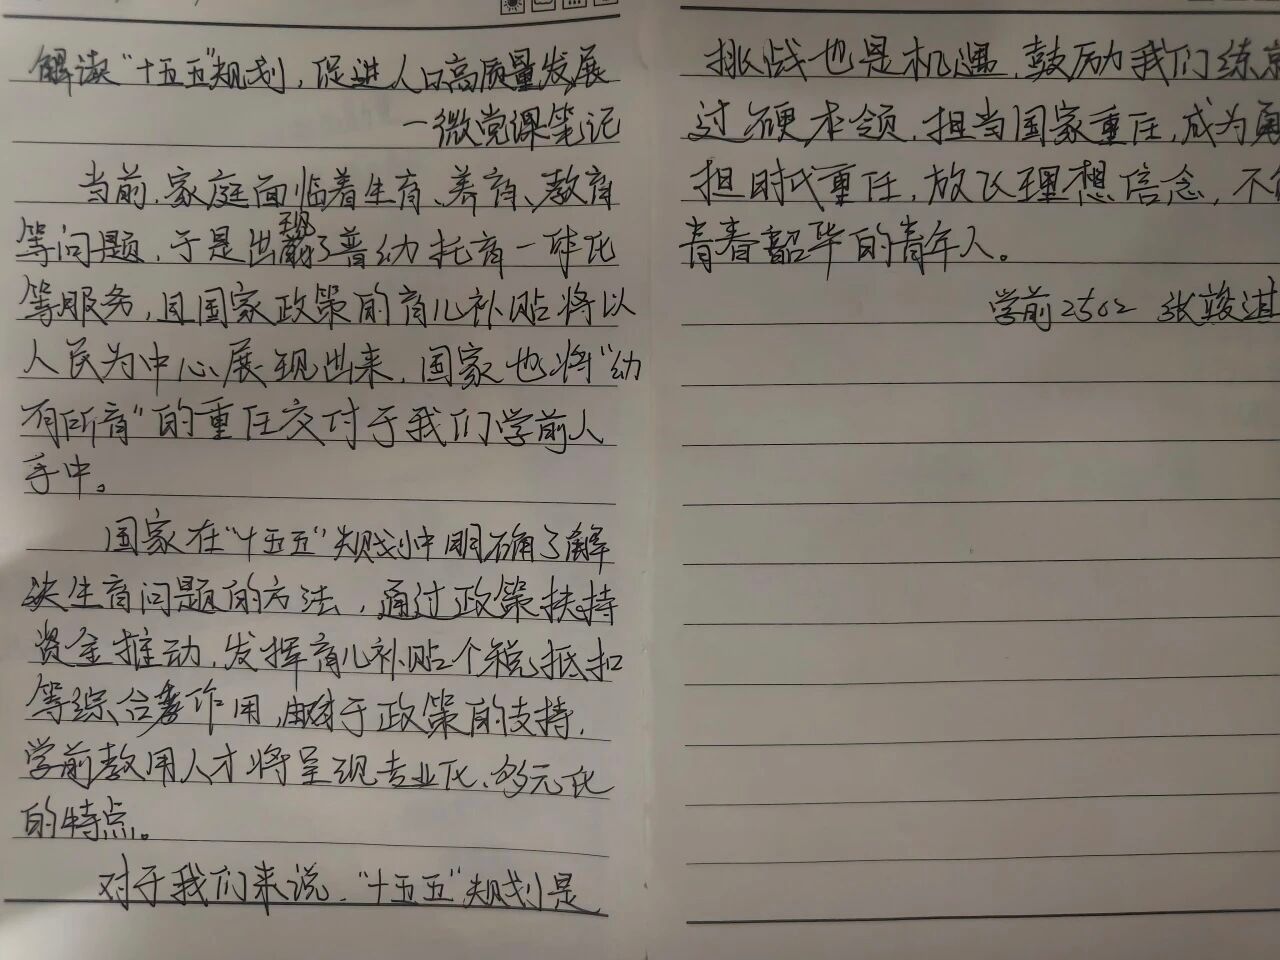 解读“十五五”规划，促进人口高质量发展
—微党课笔记
当前，家庭面临着生育、养育、教育
等问题，于是出现了普幼托育一体化
等服务，且国家政策的育儿补贴将以
人民为中心展现出来，国家也将“幼
有所育”的重任交付于我们学前人
手中。
国家在“十五五”规划中明确了解
决生育问题的方法，通过政策扶持
资金推动，发挥育儿补贴个税抵扣
等综合作用，由于政策的支持，
学前教用人才将呈现专业化、多元化
的特点。
对于我们来说，“十五五”规划是
挑战也是机遇，鼓励我们练
过硬本领，担当国家重任，成为勇
担时代重任，放飞理想信念，不
青春韶华的青年人。
学前2502 张骏淇